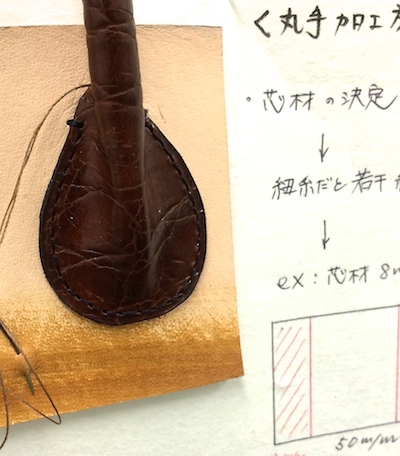 く丸手加工方
・芯材の決定
↓
紐糸だと若干
↓
ex:芯材 8m
50m/m